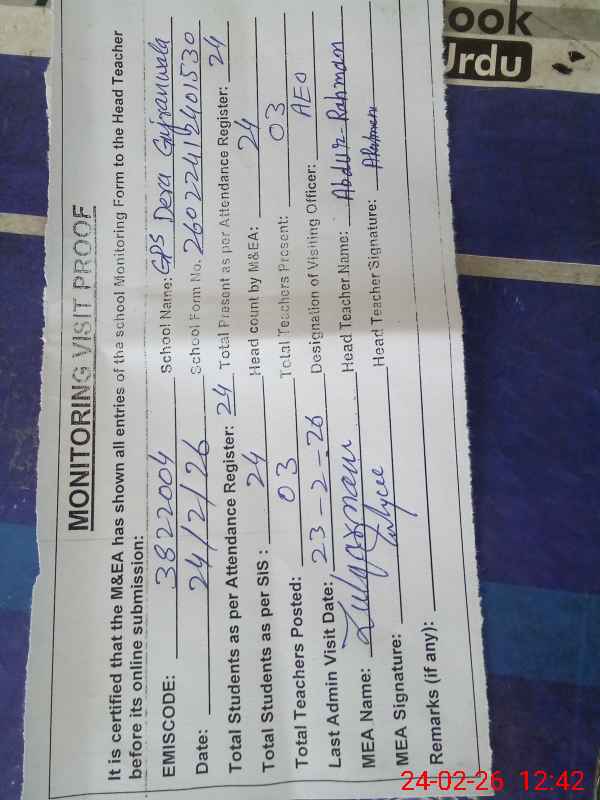 MONITORING VISIT PROOF
It is certified that the M&EA has shown all entries of the school Monitoring Form to the Head Teacher
before its online submission:
EMISCODE: 3822004 School Name: GPS Dera Gujranwala
Date: 24/2/26 School Form No. 260224112401530
Total Students as per Attendance Register: 24 Total Present as per Attendance Register: 24
Total Students as per SIS : 24 Head count by M&EA: 24
Total Teachers Posted: 03 Total Teachers Present: 03
Last Admin Visit Date: 23-2-26 Designation of Visiting Officer: AEO
MEA Name: Head Teacher Name: Abdur-Rahman
MEA Signature: Head Teacher Signature:
Remarks (if any):
ook
Urdu
24-02-26 12:42